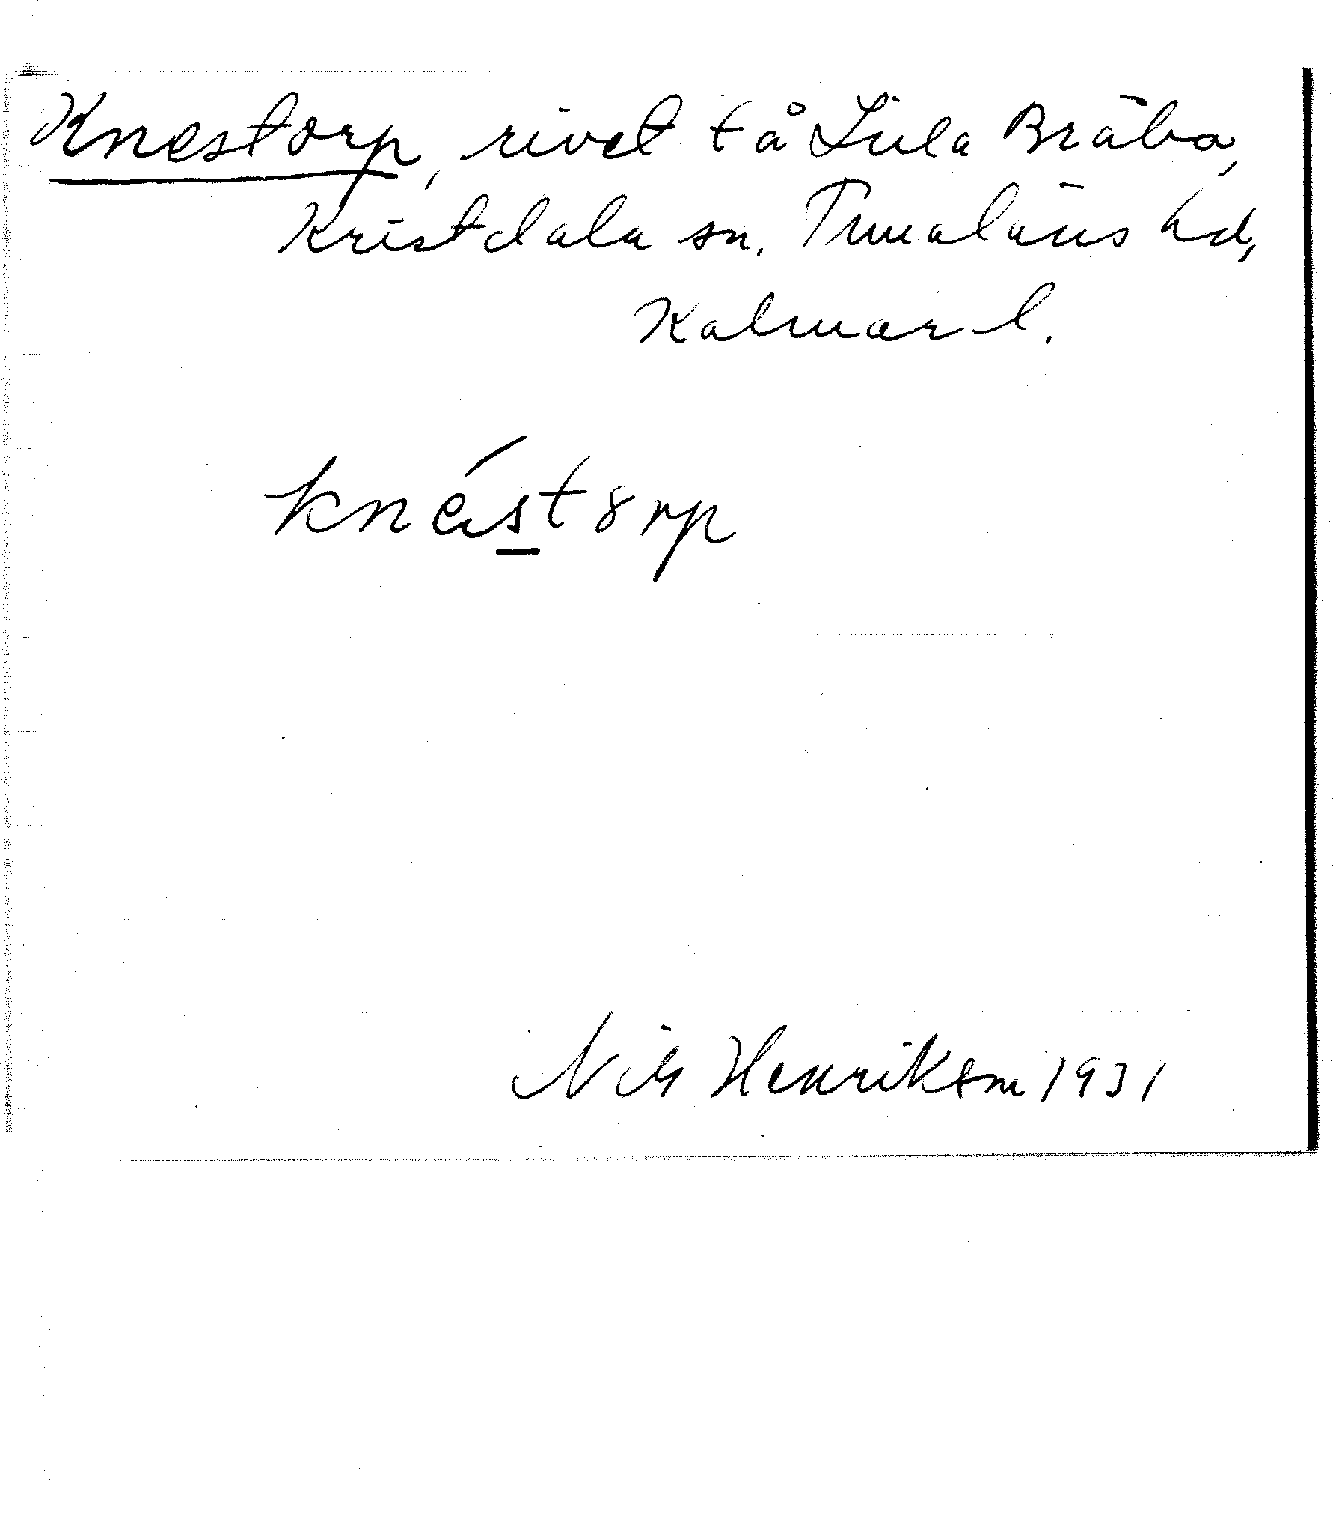 Knestorp, rivet tå Lilla Bråbo,
Kristdala sn. Tunaläns hd,
Kalmar l.
knéstorp
Nils Henriksson 1931